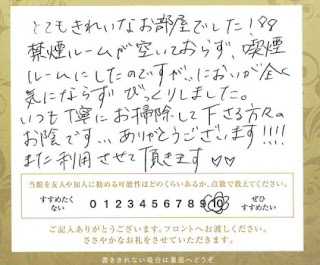 とてもきれいなお部屋でした!!
禁煙ルームが空いておらず、喫煙
ルームにしたのですが、、においが全く
気にならずびっくりしました。
いつも丁寧にお掃除して下さる方々の
お陰です... ありがとうございます!!!!
また利用させて頂きます♡♡
当館を友人や知人に勧める可能性はどのくらいあるか、点数で教えてください。
すすめたくない 0 1 2 3 4 5 6 7 8 9 10 ぜひすすめたい
ご記入ありがとうございます。フロントへお渡しください。
ささやかなお礼をさせていただきます。
書ききれない場合は裏面へどうぞ